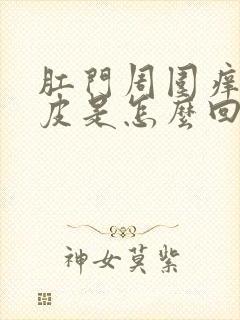 肛門周圍癢
皮是怎麼回
神女莫紫